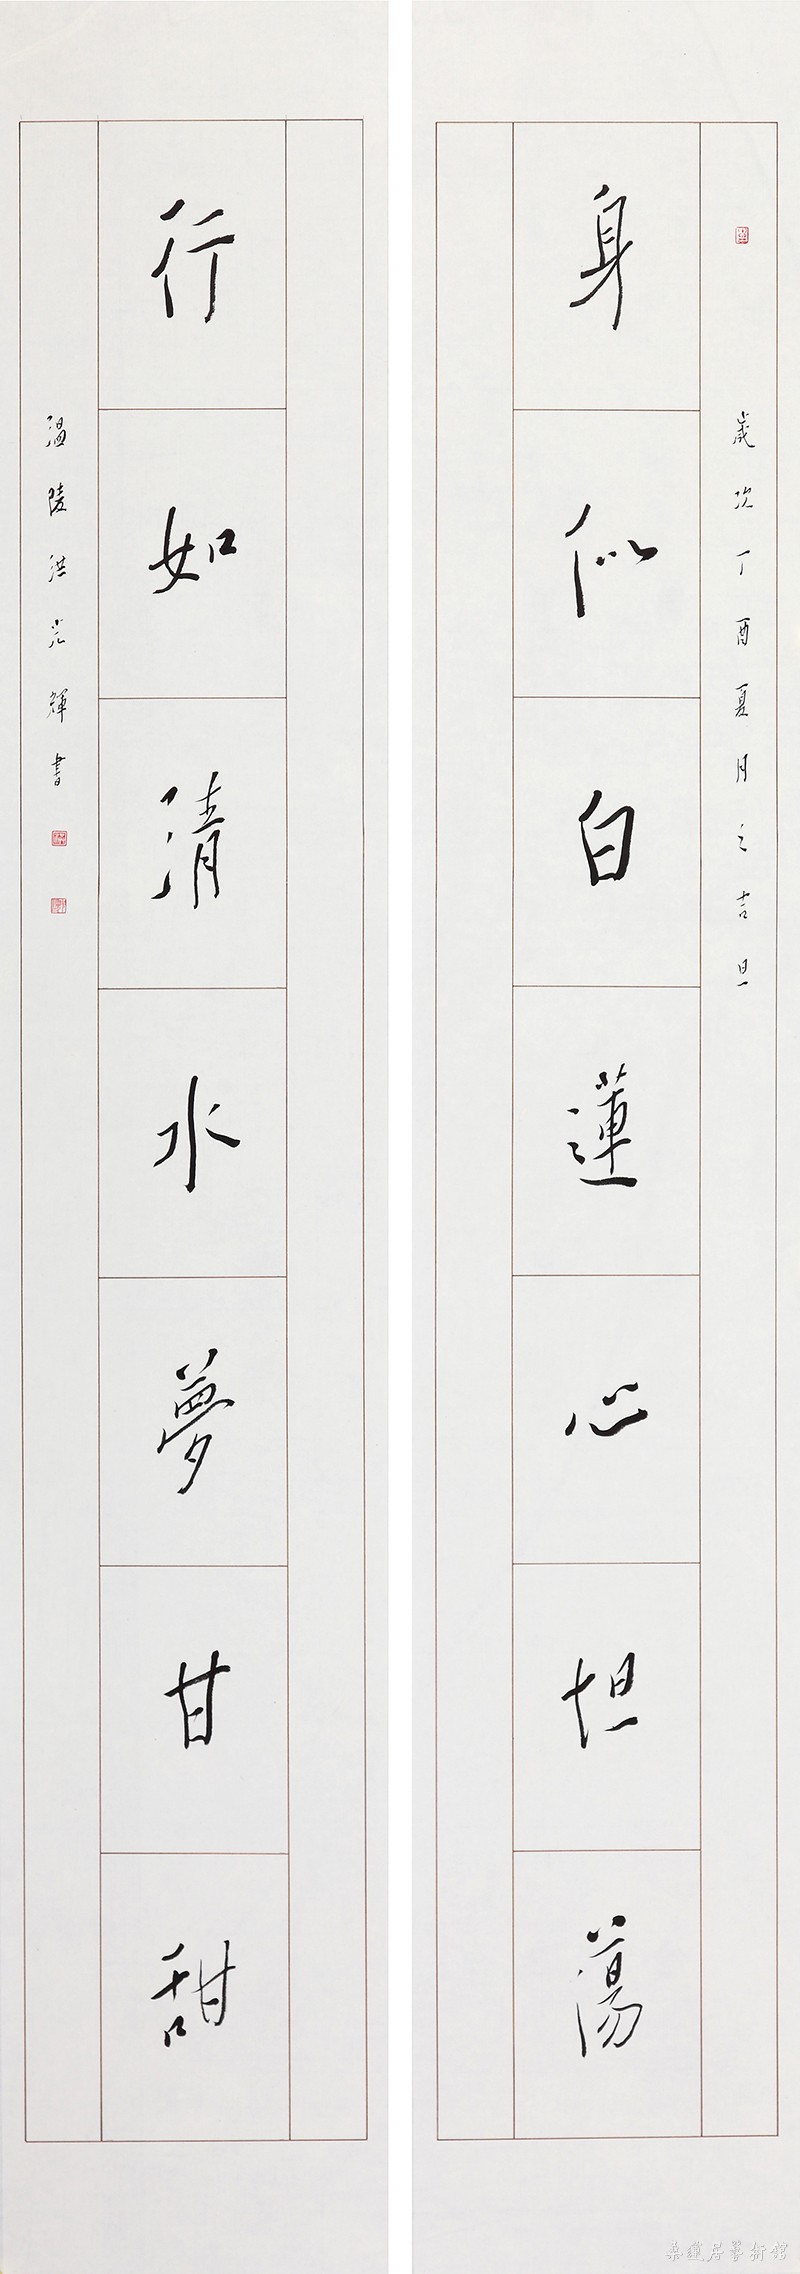 歲次丁酉夏月之吉旦
身似白蓮心坦蕩
行如清水夢甘甜
溫陵洪光輝書